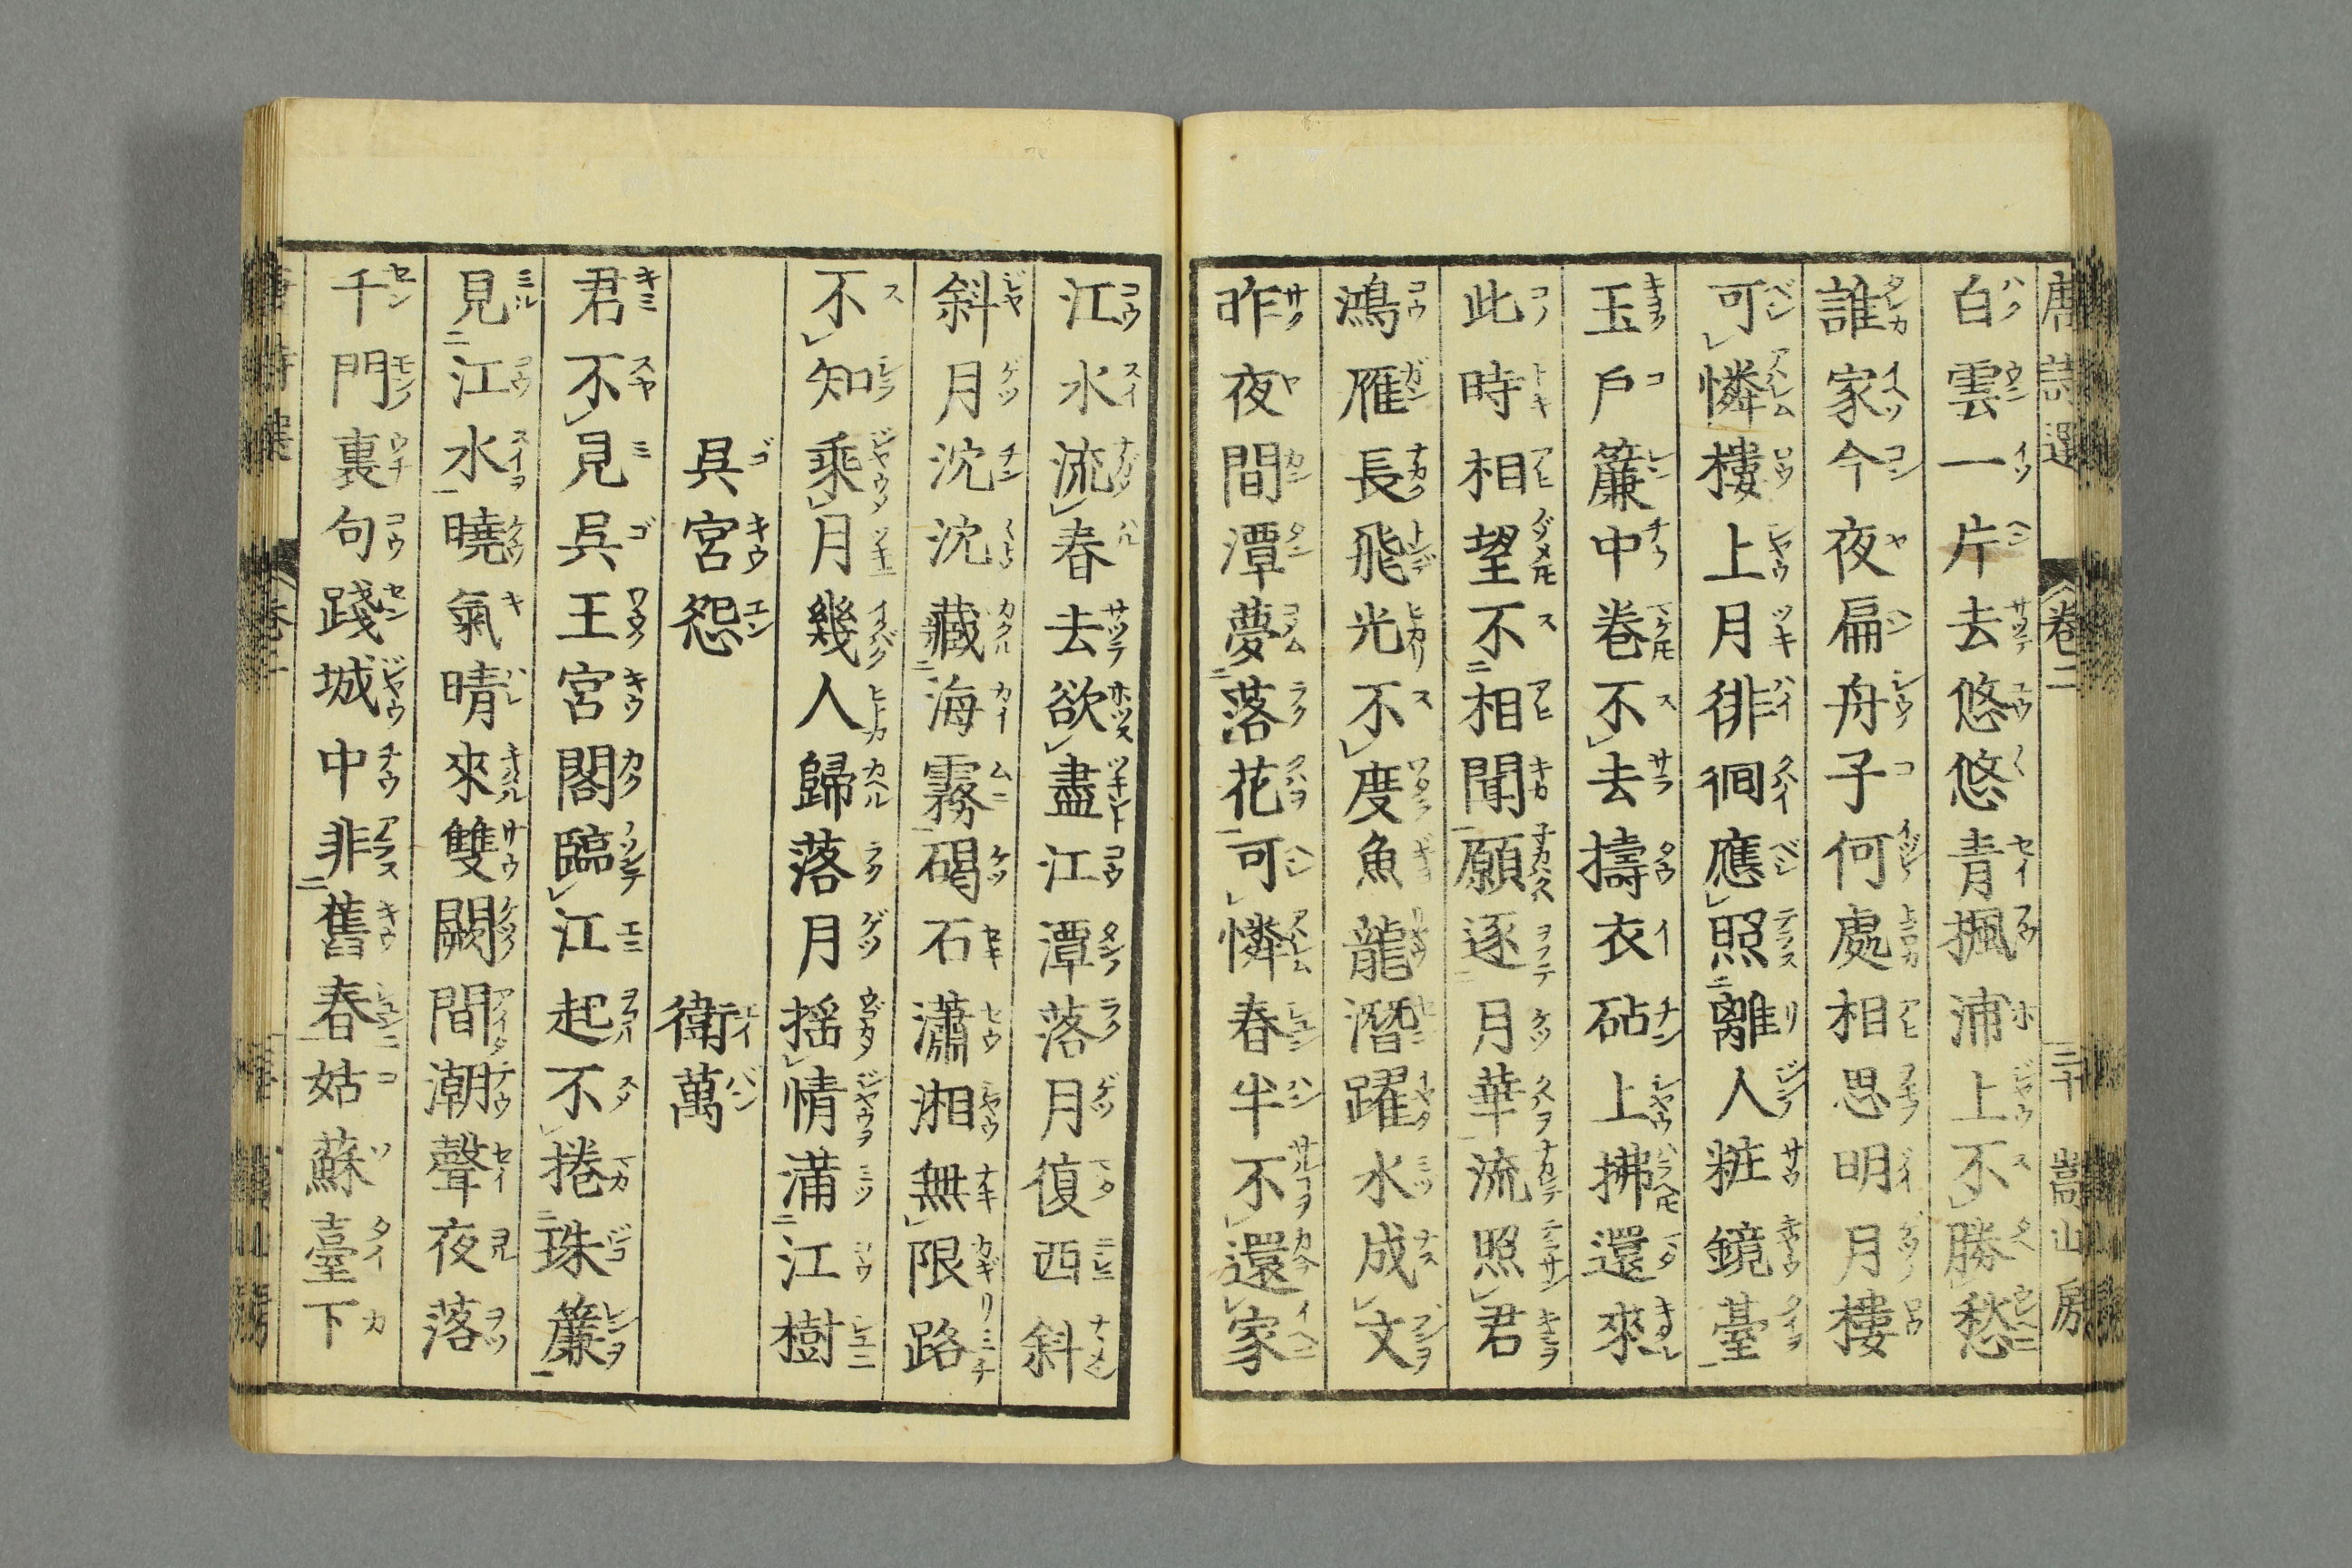 唐詩選 卷二 三十 嵩山房
白雲一片去悠悠青楓浦上不勝愁
誰家今夜扁舟子何處相思明月樓
可憐樓上月徘徊應照離人粧鏡臺
玉戶簾中卷不去擣衣砧上拂還來
此時相望不相聞願逐月華流照君
鴻雁長飛光不度魚龍潛躍水成文
昨夜間潭夢落花可憐春半不還家
江水流春去欲盡江潭落月復西斜
斜月沈沈藏海霧碣石瀟湘無限路
不知乘月幾人歸落月搖情滿江樹
吳宮怨 衛萬
君不見吳王宮閣臨江起不捲珠簾
見江水曉氣晴來雙闕間潮聲夜落
千門裏句踐城中非舊春姑蘇臺下